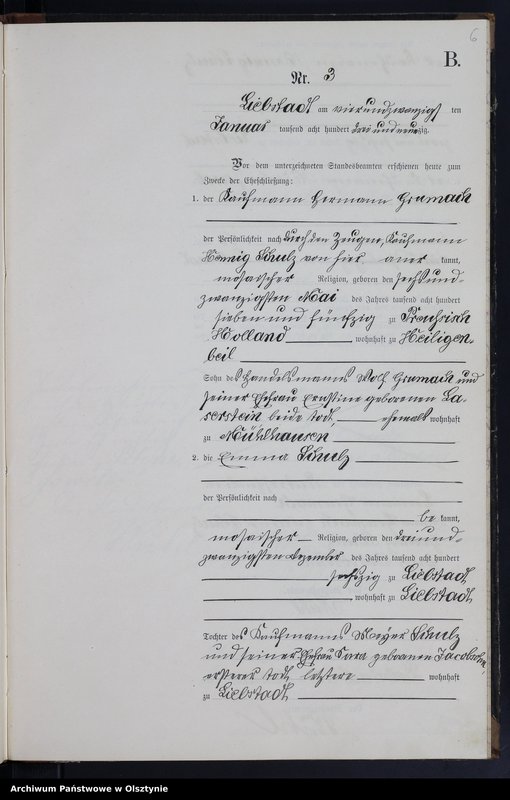 6
B.
Nr. 3
Liebstadt am vierundzwanzigsten
Januar tausend acht hundert dreiundneunzig.
Vor dem unterzeichneten Standesbeamten erschienen heute zum
Zwecke der Eheschließung:
1. der Kaufmann Hermann Grumach
der Persönlichkeit nach durch den Zeugen, Kaufmann
Schulz von hier aner kannt,
mosaischer Religion, geboren den sechsund-
zwanzigsten Mai des Jahres tausend acht hundert
sieben und fünfzig zu Preußisch
Holland wohnhaft zu Heiligen-
beil
Sohn des Handelsmanns Wolf Grumach und
seiner Ehefrau Ernstine geborenen La-
serstein beide todt, ehemals wohnhaft
zu Mühlhausen
2. die Emma Schulz
der Persönlichkeit nach
be kannt,
mosaischer Religion, geboren den dreiund-
zwanzigsten Dezember des Jahres tausend acht hundert
sechszig zu Liebstadt
wohnhaft zu Liebstadt
Tochter des Kaufmanns Meyer Schulz
und seiner Ehefrau Sara geborenen Jacobsohn,
ersterer todt, letztere wohnhaft
zu Liebstadt
Archiwum Państwowe w Olsztynie